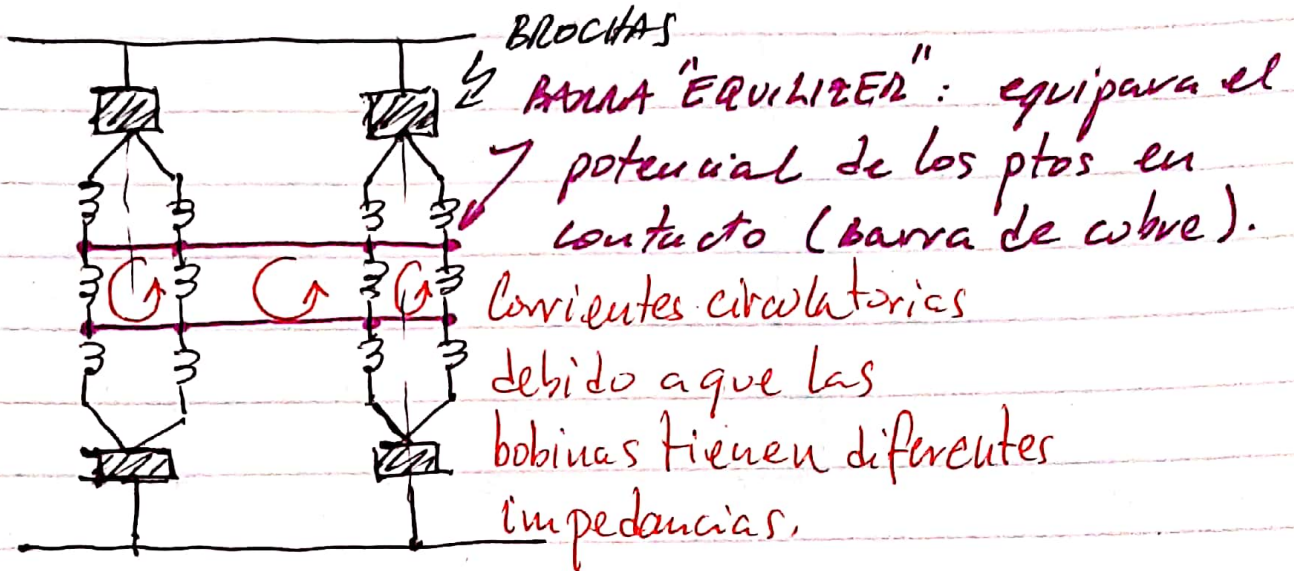 BROCHAS
BARRA "EQUILIZER": equipara el
potencial de los ptos en
contacto (Barra de cobre).
Corrientes circulatorias
debido a que las
bobinas tienen diferentes
impedancias.